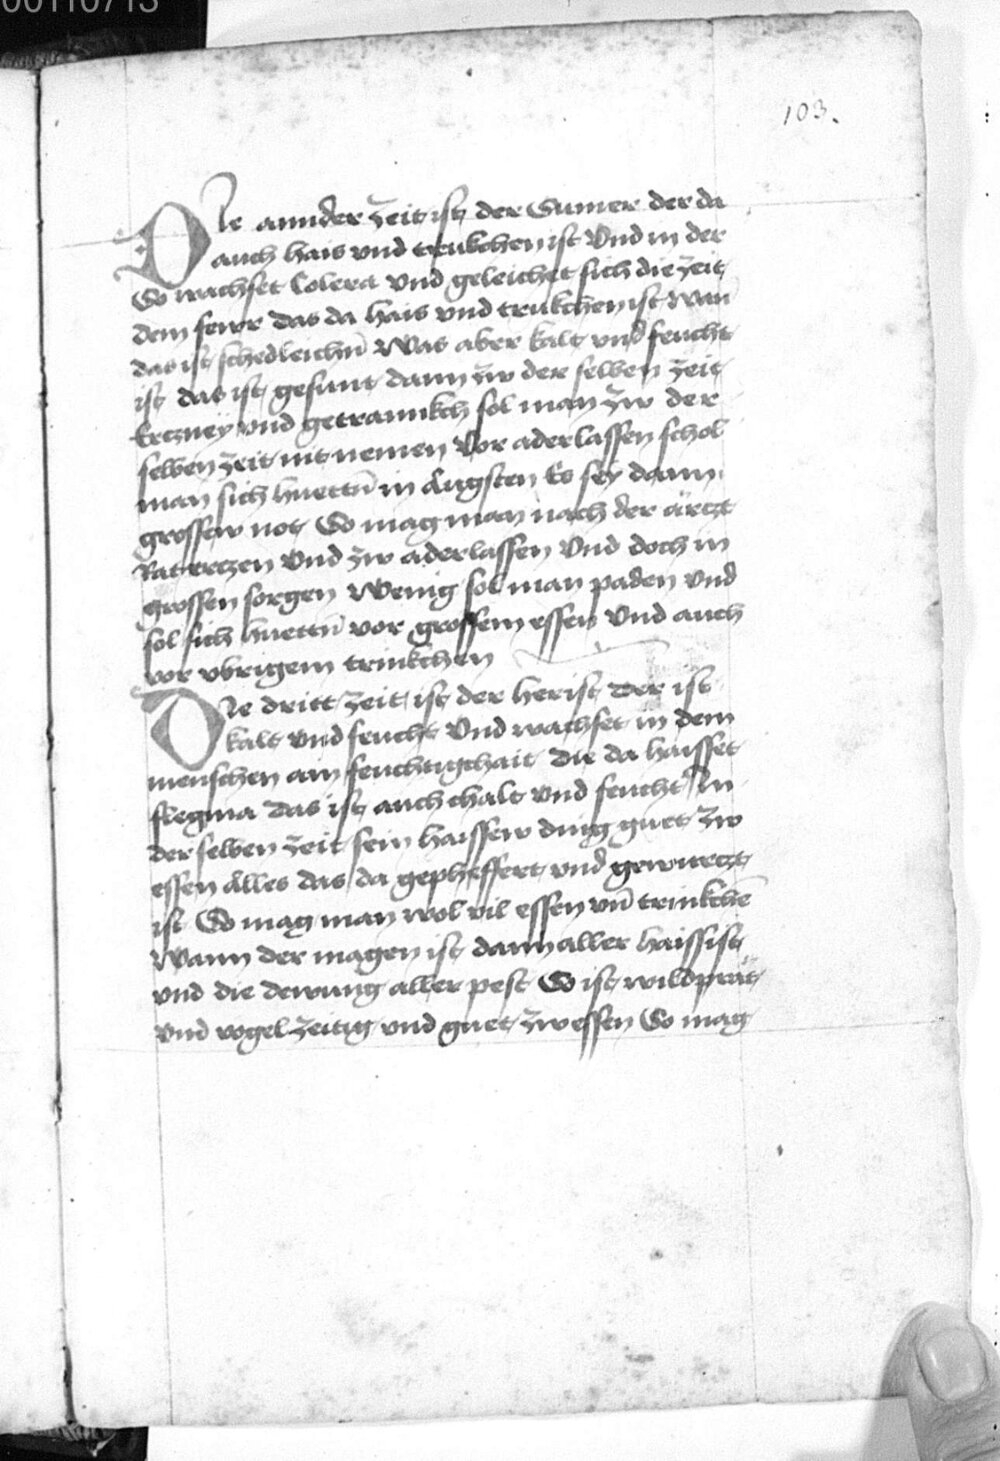 00110713
103.
Die annder zeit ist der Sumer der da
auch hais vnd trukchen ist Vnd in der
So wachset Colera vnd geleichet sich die zeit
dem fewr das da hais vnd trukchen ist wan̄
das ist schedleichn̄ Was aber kalt vnd feucht
ist das ist gesunt dann zw der selben zeit
Ercztney vnd getrannkch sol man zw der
selben zeit nit nemen Vor aderlassen schol
man sich huettn̄ in Augsten Es sey dann
grossew not So mag man nach der ärczt
Rat erczen Vnd zw aderlassen Vnd doch in
grossen sorgen Wenig sol man paden vnd
sol sich huettn̄ vor grossem essen Vnd auch
vor vbrigem trinkchen
Die dritt zeit ist der herist Der ist
kalt vnd feucht Vnd wachset in dem
menschen ain feuchtigchait die da haisset
flegma das ist auch chalt vnd feucht In
der selben zeit sein haissew ding guet zw
essen Alles das da gepheffert vnd gewurczt
ist So mag man wol vil essen vn̄ trinkchē
Wann der magen ist dann aller haissist
vnd die dewung aller pest So ist wildprät
vnd vogel zeitig vnd guet zw essen So mag